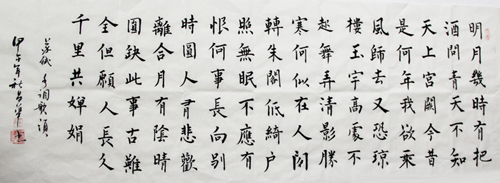 明月幾時有把
酒問青天不知
天上宮闕今昔
是何年我欲乘
風歸去又恐瓊
樓玉宇高處不
起舞弄清影勝
寒何似在人間
轉朱閣低綺户
照無眠不應有
恨何事長向别
時圓人有悲歡
離合月有陰晴
圓缺此事古難
全但願人長久
千里共嬋娟
蘇軾 水調歌頭
甲午年秋